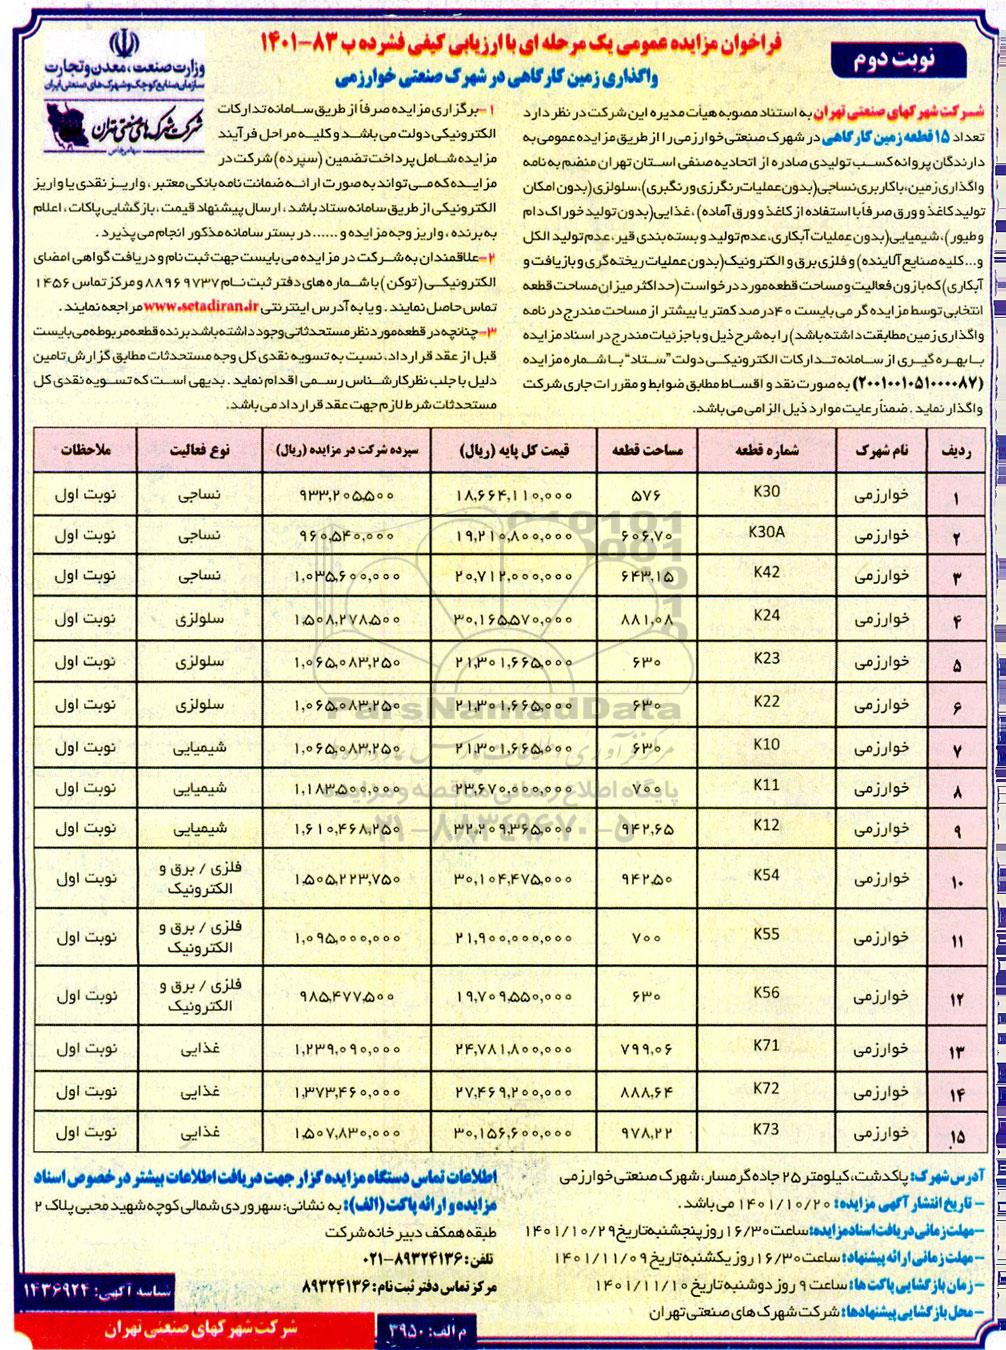 نوبت دوم
فراخوان مزایده عمومی یک مرحله ای با ارزیابی کیفی فشرده پ ۸۳-۱۴۰۱
واگذاری زمین کارگاهی در شهرک صنعتی خوارزمی
وزارت صنعت، معدن و تجارت
سازمان صنایع کوچک و شهرک های صنعتی ایران
شرکت شهرک های صنعتی تهران
سهامی خاص
شرکت شهرکهای صنعتی تهران به استناد مصوبه هیأت مدیره این شرکت در نظر دارد
تعداد ۱۵ قطعه زمین کارگاهی در شهرک صنعتی خوارزمی را از طریق مزایده عمومی به
دارندگان پروانه کسب تولیدی صادره از اتحادیه صنفی استان تهران منضم به نامه
واگذاری زمین، با کاربری نساجی (بدون عملیات رنگرزی و رنگبری)، سلولزی (بدون امکان
تولید کاغذ و ورق صرفاً با استفاده از کاغذ و ورق آماده)، غذایی (بدون تولید خوراک دام
و طیور)، شیمیایی (بدون عملیات آبکاری، عدم تولید و بسته بندی قیر، عدم تولید الکل
و...کلیه صنایع آلاینده) و فلزی برق و الکترونیک (بدون عملیات ریخته گری و بازیافت و
آبکاری) که با زون فعالیت و مساحت قطعه مورد درخواست (حداکثر میزان مساحت قطعه
انتخابی توسط مزایده گر می بایست ۴۰ درصد کمتر یا بیشتر از مساحت مندرج در نامه
واگذاری زمین مطابقت داشته باشد) را به شرح ذیل و با جزئیات مندرج در اسناد مزایده
با بهره گیری از سامانه تدارکات الکترونیکی دولت "ستاد" با شماره مزایده
(۲۰۰۱۰۰۱۰۵۱۰۰۰۰۸۷) به صورت نقد و اقساط مطابق ضوابط و مقررات جاری شرکت
واگذار نماید. ضمناً رعایت موارد ذیل الزامی می باشد.
۱-برگزاری مزایده صرفاً از طریق سامانه تدارکات
الکترونیکی دولت می باشد و کلیه مراحل فرآیند
مزایده شامل پرداخت تضمین (سپرده) شرکت در
مزایده که می تواند به صورت ارائه ضمانت نامه بانکی معتبر، واریز نقدی یا واریز
الکترونیکی از طریق سامانه ستاد باشد، ارسال پیشنهاد قیمت، بازگشایی پاکات، اعلام
به برنده، واریز وجه مزایده و ...... در بستر سامانه مذکور انجام می پذیرد.
۲-علاقمندان به شرکت در مزایده می بایست جهت ثبت نام و دریافت گواهی امضای
الکترونیکی (توکن) با شماره های دفتر ثبت نام ۸۸۹۶۹۷۳۷ و مرکز تماس ۱۴۵۶
تماس حاصل نمایند. و یا به آدرس اینترنتی www.setadiran.ir مراجعه نمایند.
۳-چنانچه در قطعه مورد نظر مستحدثاتی وجود داشته باشد برنده قطعه مربوطه می بایست
قبل از عقد قرارداد، نسبت به تسویه نقدی کل وجه مستحدثات مطابق گزارش تامین
دلیل با جلب نظر کارشناس رسمی اقدام نماید. بدیهی است که تسویه نقدی کل
مستحدثات شرط لازم جهت عقد قرارداد می باشد.
ردیف نام شهرک شماره قطعه مساحت قطعه قیمت کل پایه (ریال) سپرده شرکت در مزایده (ریال) نوع فعالیت ملاحظات
۱ خوارزمی K30 ۵۷۶ ۱۸,۶۶۴,۱۱۰,۰۰۰ ۹۳۳,۲۰۵,۵۰۰ نساجی نوبت اول
۲ خوارزمی K30A ۶۰۶,۷۰ ۱۹,۲۱۰,۸۰۰,۰۰۰ ۹۶۰,۵۴۰,۰۰۰ نساجی نوبت اول
۳ خوارزمی K42 ۶۴۳,۱۵ ۲۰,۷۱۲,۰۰۰,۰۰۰ ۱,۰۳۵,۶۰۰,۰۰۰ نساجی نوبت اول
۴ خوارزمی K24 ۸۸۱,۰۸ ۳۰,۱۶۵,۵۷۰,۰۰۰ ۱,۵۰۸,۲۷۸,۵۰۰ سلولزی نوبت اول
۵ خوارزمی K23 ۶۳۰ ۲۱,۳۰۱,۶۶۵,۰۰۰ ۱,۰۶۵,۰۸۳,۲۵۰ سلولزی نوبت اول
۶ خوارزمی K22 ۶۳۰ ۲۱,۳۰۱,۶۶۵,۰۰۰ ۱,۰۶۵,۰۸۳,۲۵۰ سلولزی نوبت اول
۷ خوارزمی K10 ۶۳۰ ۲۱,۳۰۱,۶۶۵,۰۰۰ ۱,۰۶۵,۰۸۳,۲۵۰ شیمیایی نوبت اول
۸ خوارزمی K11 ۷۰۰ ۲۳,۶۷۰,۰۰۰,۰۰۰ ۱,۱۸۳,۵۰۰,۰۰۰ شیمیایی نوبت اول
۹ خوارزمی K12 ۹۴۲,۶۵ ۳۲,۲۰۹,۳۶۵,۰۰۰ ۱,۶۱۰,۴۶۸,۲۵۰ شیمیایی نوبت اول
۱۰ خوارزمی K54 ۹۴۲,۵۰ ۳۰,۱۰۴,۴۷۵,۰۰۰ ۱,۵۰۵,۲۲۳,۷۵۰ فلزی / برق و الکترونیک نوبت اول
۱۱ خوارزمی K55 ۷۰۰ ۲۱,۹۰۰,۰۰۰,۰۰۰ ۱,۰۹۵,۰۰۰,۰۰۰ فلزی / برق و الکترونیک نوبت اول
۱۲ خوارزمی K56 ۶۳۰ ۱۹,۷۰۹,۵۵۰,۰۰۰ ۹۸۵,۴۷۷,۵۰۰ فلزی / برق و الکترونیک نوبت اول
۱۳ خوارزمی K71 ۷۹۹,۰۶ ۲۴,۷۸۱,۸۰۰,۰۰۰ ۱,۲۳۹,۰۹۰,۰۰۰ غذایی نوبت اول
۱۴ خوارزمی K72 ۸۸۸,۶۴ ۲۷,۴۶۹,۲۰۰,۰۰۰ ۱,۳۷۳,۴۶۰,۰۰۰ غذایی نوبت اول
۱۵ خوارزمی K73 ۹۷۸,۲۲ ۳۰,۱۵۶,۶۰۰,۰۰۰ ۱,۵۰۷,۸۳۰,۰۰۰ غذایی نوبت اول
ParsNamadData
پایگاه اطلاع رسانی مناقصه و مزایده
۰۲۱-۸۸۳۴۹۶۷۰-۵
آدرس شهرک: پاکدشت، کیلومتر ۲۵ جاده گرمسار، شهرک صنعتی خوارزمی
- تاریخ انتشار آگهی مزایده: ۱۴۰۱/۱۰/۲۰ می باشد.
-مهلت زمانی دریافت اسناد مزایده: ساعت ۱۶/۳۰ روز پنجشنبه تاریخ ۱۴۰۱/۱۰/۲۹
-مهلت زمانی ارائه پیشنهاد: ساعت ۱۶/۳۰ روز یکشنبه تاریخ ۱۴۰۱/۱۱/۰۹
-زمان بازگشایی پاکت ها: ساعت ۹ روز دوشنبه تاریخ ۱۴۰۱/۱۱/۱۰
-محل بازگشایی پیشنهادها: شرکت شهرک های صنعتی تهران
اطلاعات تماس دستگاه مزایده گزار جهت دریافت اطلاعات بیشتر در خصوص اسناد
مزایده و ارائه پاکت (الف): به نشانی: سهروردی شمالی کوچه شهید محبی پلاک ۲
طبقه همکف دبیرخانه شرکت
تلفن: ۸۹۳۲۴۱۳۶-۰۲۱
مرکز تماس دفتر ثبت نام: ۸۹۳۲۴۱۳۶
شناسه آگهی: ۱۴۳۶۹۲۴
م الف: ۳۹۵۰
شرکت شهرکهای صنعتی تهران